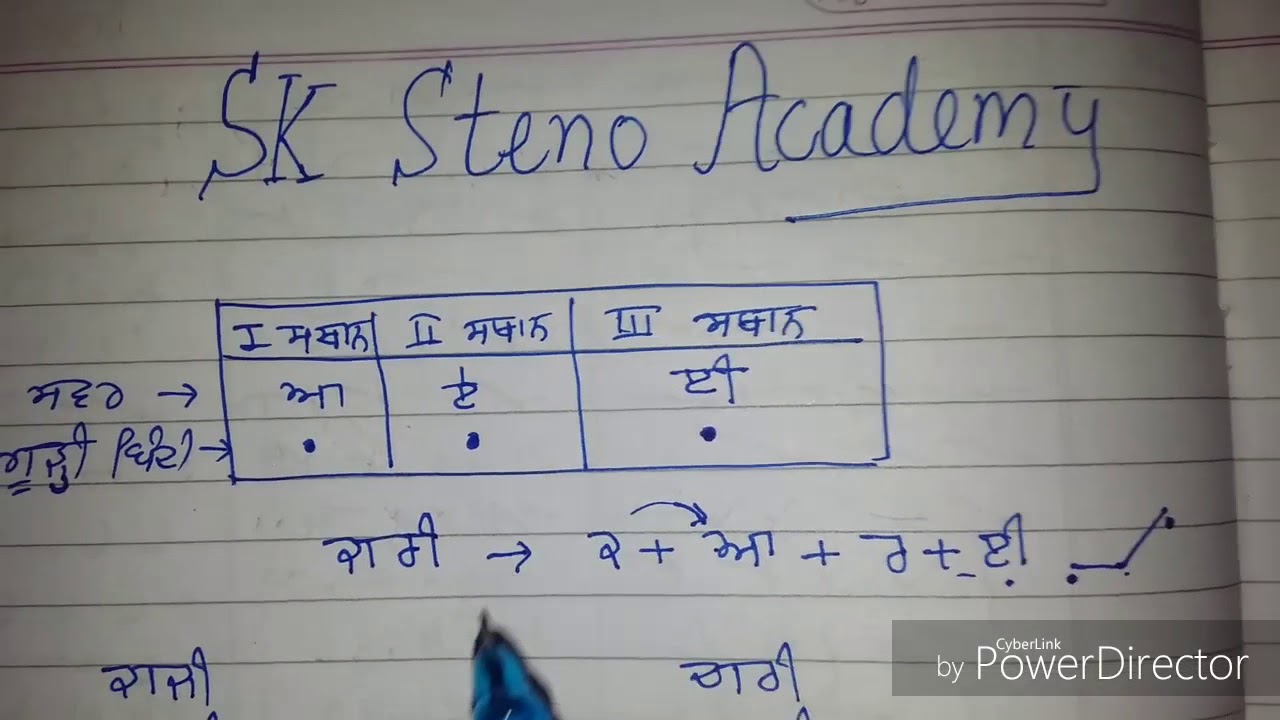 SK Steno Academy
I ਸਥਾਨ II ਸਥਾਨ III ਸਥਾਨ
ਸਵਰ → ਆ ਏ ਈ
ਗੂੜ੍ਹੀ ਬਿੰਦੀ → • • •
ਕਾਰੀ → ਕ + ਆ + ਰ + ਈ
ਕਾਜੀ ਚਾਰੀ
CyberLink
by PowerDirector